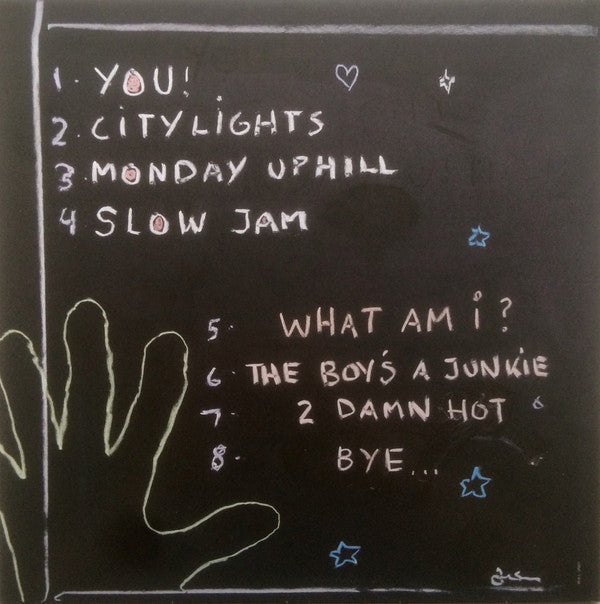 1. YOU!
2. CITYLIGHTS
3. MONDAY UPHILL
4 SLOW JAM
5. WHAT AM I?
6. THE BOY'S A JUNKIE
7. 2 DAMN HOT
8. BYE...